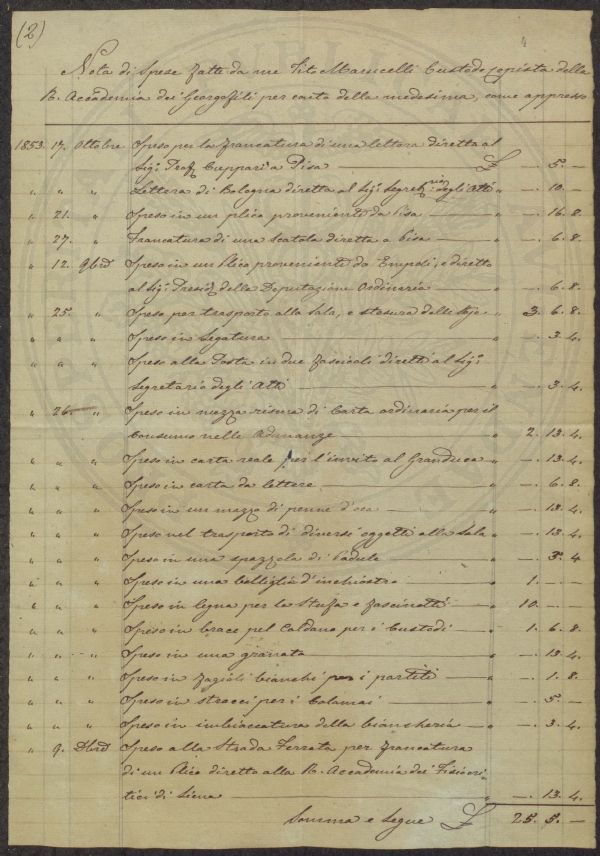 (2)
Nota di Spese fatte da me Tito Marucelli Custode, copista della
R. Accademia dei Georgofili per conto della medesima, come appresso
1853. 17. Ottobre Speso per la francatura di una lettera diretta al
Sigr. Prof. Cuppari a Pisa £ —. 5. —
" " " Lettera di Bologna diretta al Sigr. Segretrio degli Atti " —. 10. —
" 21. " Speso in un plico proveniente da Pisa " —. 16. 8.
" 27. " Francatura di una Scatola diretta a Pisa " —. 6. 8.
" 12. 9bre Speso in un Plico proveniente da Empoli, e diretto
al Sigr. Presid. della Deputazione Ordinaria " —. 6. 8.
" 25. " Speso per trasporto alla Sala, e stesura delle Stoje " 3. 6. 8.
" " " Speso in Legatura " —. 3. 4.
" " " Speso alla Posta in due fascicoli diretti al Sigr.
Segretario degli Atti " —. 3. 4.
" 26. " Speso in mezza risma di Carta ordinaria per il
Consumo nelle Adunanze " 2. 13. 4.
" " " Speso in carta reale per l'invito al Granduca " —. 13. 4.
" " " Speso in carta da lettere " —. 6. 8.
" " " Speso in un mazzo di penne d'oca " —. 13. 4.
" " " Speso nel trasporto di diversi oggetti alla Sala " —. 13. 4.
" " " Speso in una spazzola di Padule " —. 3. 4
" " " Speso in una bottiglia d'inchiostro " 1. —. —
" " " Speso in legna per la Stufa e fascinotti " 10. —. —
" " " Speso in brace pel Caldano per i Custodi " 1. 6. 8.
" " " Speso in una granata " —. 13. 4.
" " " Speso in fagioli bianchi per i partiti " —. 1. 8.
" " " Speso in stracci per i Calamai " —. 5. —
" " " Speso in imbiaccatura della biancheria " —. 3. 4.
" 9. Dbre Speso alla Strada Ferrata per francatura
di un Plico diretto alla R. Accademia dei Fisiocri-
tici di Siena " —. 13. 4.
Somma e Segue £ 25. 5. —